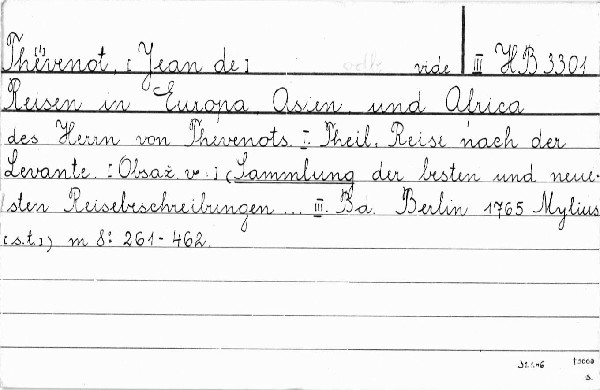 Thévenot, [Jean de] vide III HB 3301
Reisen in Europa, Asien und Africa
des Herrn von Thevenots. I. Theil. Reise nach der
Levante. [Obsaž. v:] (Sammlung der besten und neue-
sten Reisebeschreibungen ... III. Ba. Berlin 1765 Mylius
[s.t.]) m 8: 261-462.